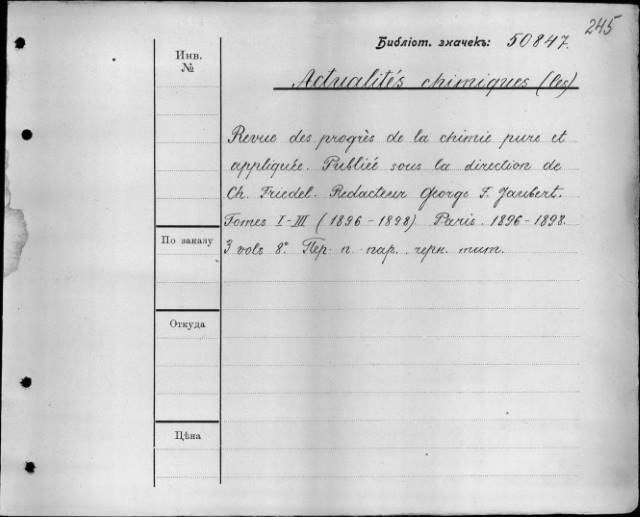 245
Библіот. значекъ: 50847.
Инв.
№
Actualités chimiques (les)
Revue des progrès de la chimie pure et
appliquée. Publiée sous la direction de
Ch. Friedel. Redacteur George F. Jaubert.
Tomes I-III (1896-1898) Paris. 1896-1898.
По заказу
3 vols 8° Пер. п. пар. черн. тит.
Откуда
Цѣна